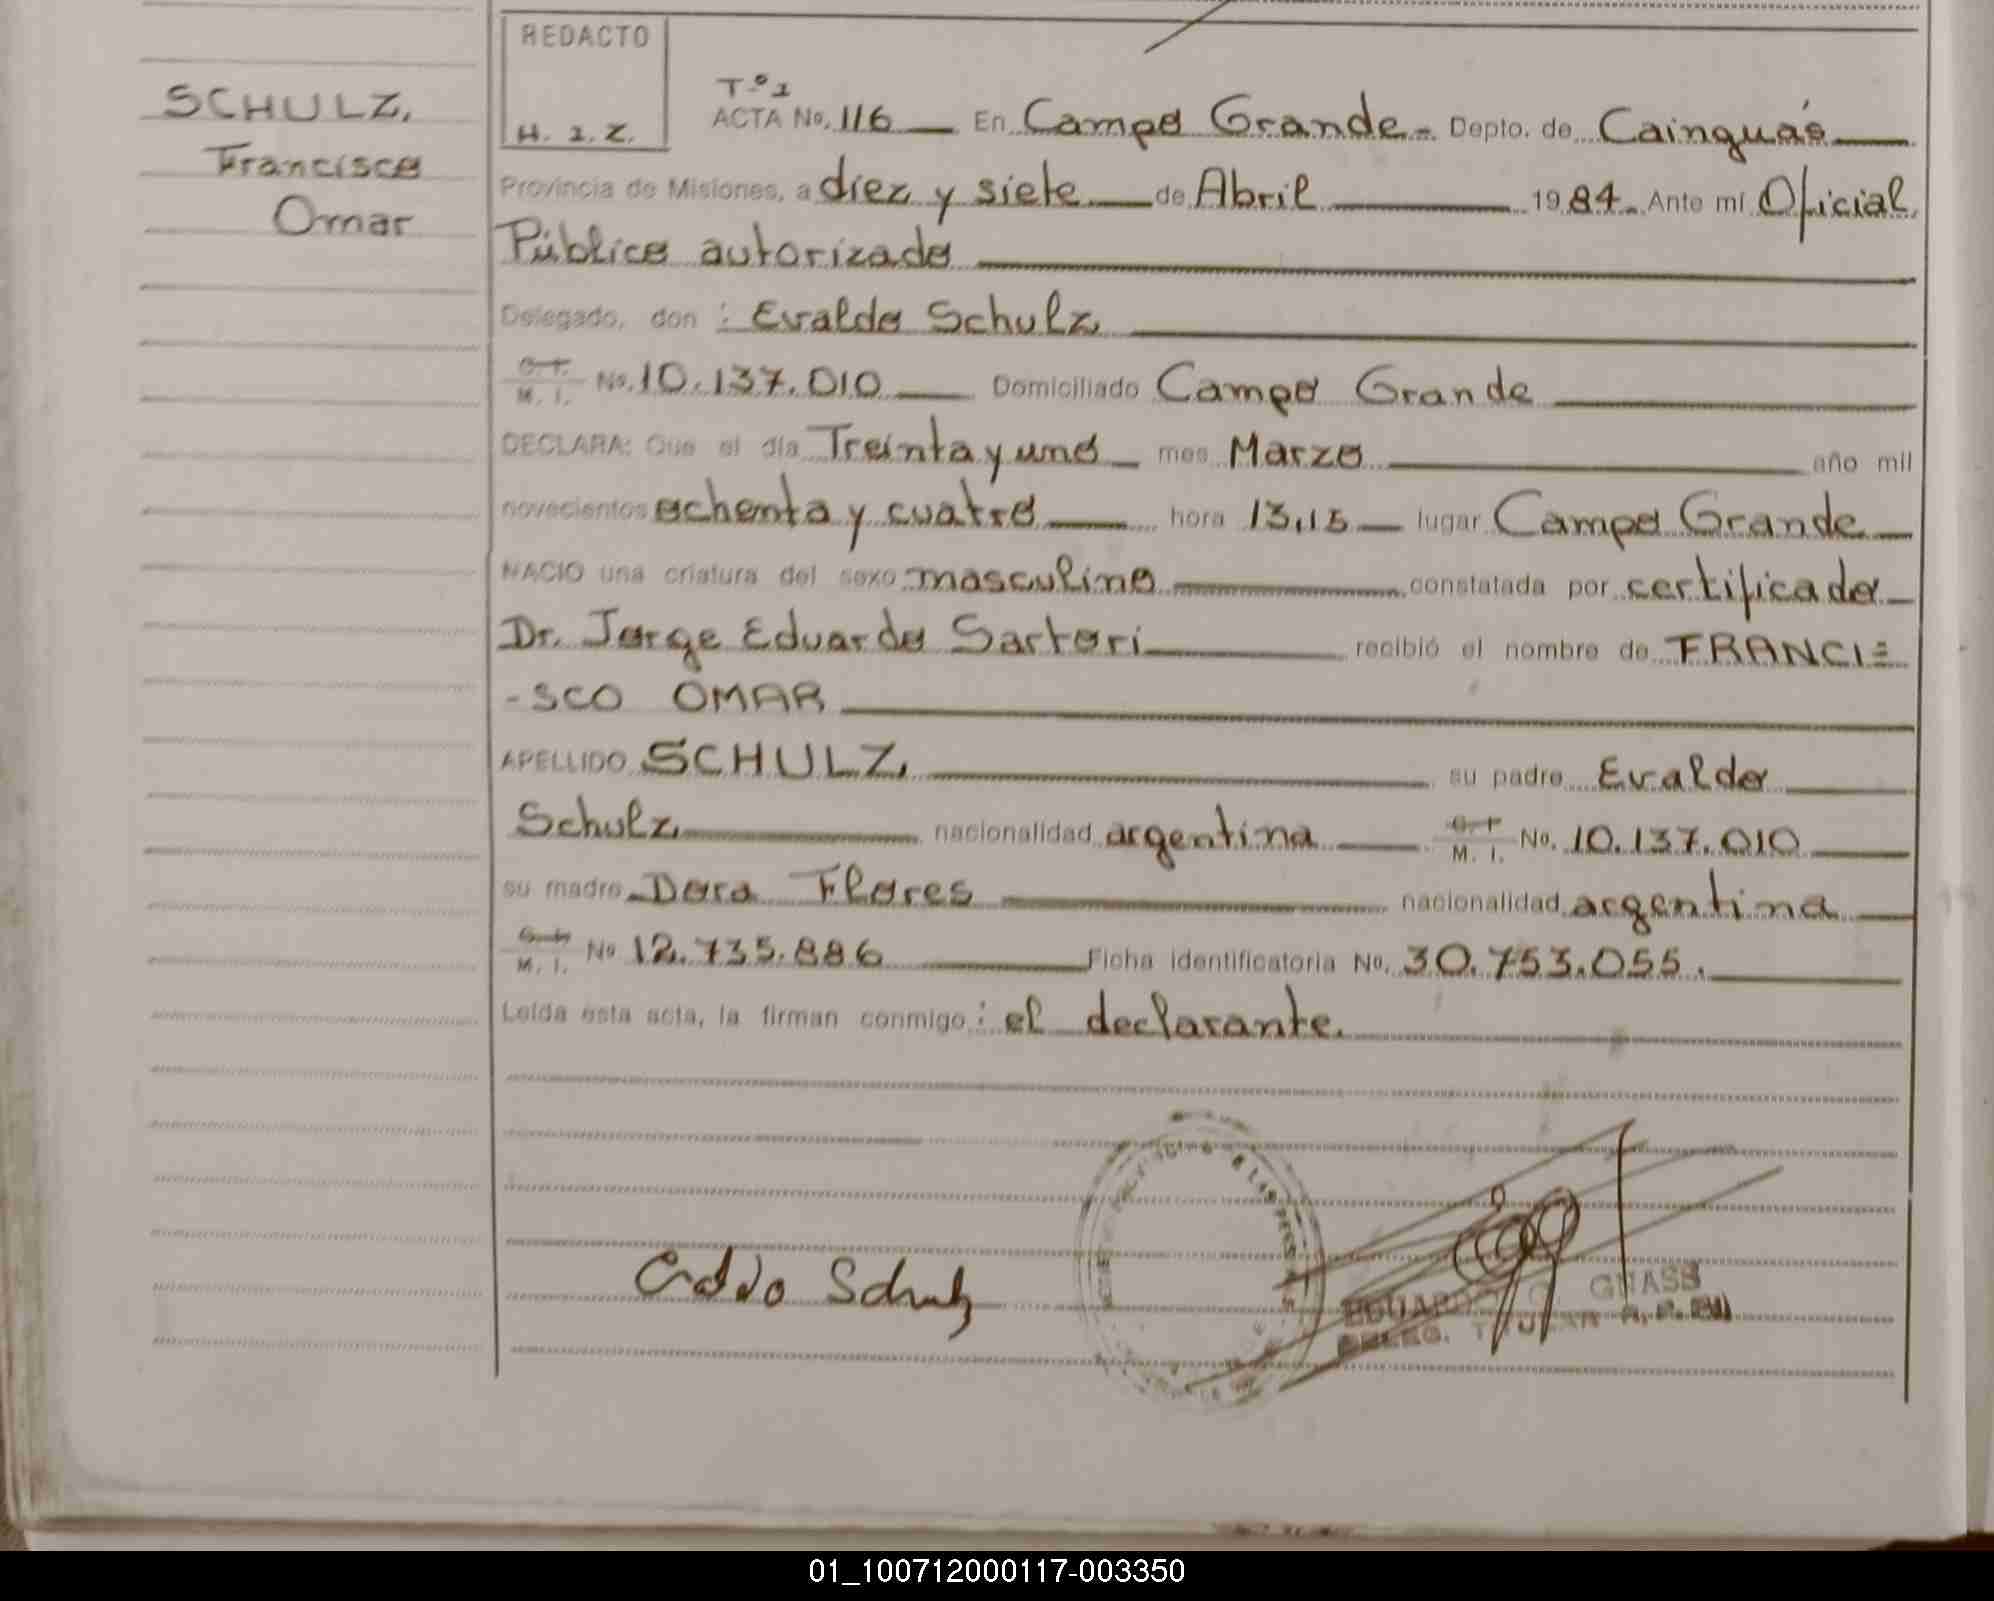 SCHULZ,
Francisco
Omar
REDACTO
H. I. Z.
Tº 1
ACTA No. 116 En Campo Grande - Depto. de Cainguás
Provincia de Misiones, a diez y siete de Abril 1984. Ante mí Oficial
Público autorizado
Delegado, don : Evaldo Schulz
C. I. M. I. No. 10.137.010 Domiciliado Campo Grande
DECLARA: Que el día Treinta y uno mes Marzo año mil
novecientos ochenta y cuatro hora 13,15 lugar Campo Grande
NACIO una criatura del sexo masculino constatada por certificado
Dr. Jorge Eduardo Sartori recibió el nombre de FRANCI=
-SCO OMAR
APELLIDO SCHULZ, su padre Evaldo
Schulz nacionalidad argentina C. I. M. I. No. 10.137.010
su madre Dora Flores nacionalidad argentina
C. I. M. I. No 12.735.886 Ficha identificatoria No. 30.753.055.
Leída esta acta, la firman conmigo : el declarante.
Schulz
GNASS
01_100712000117-003350